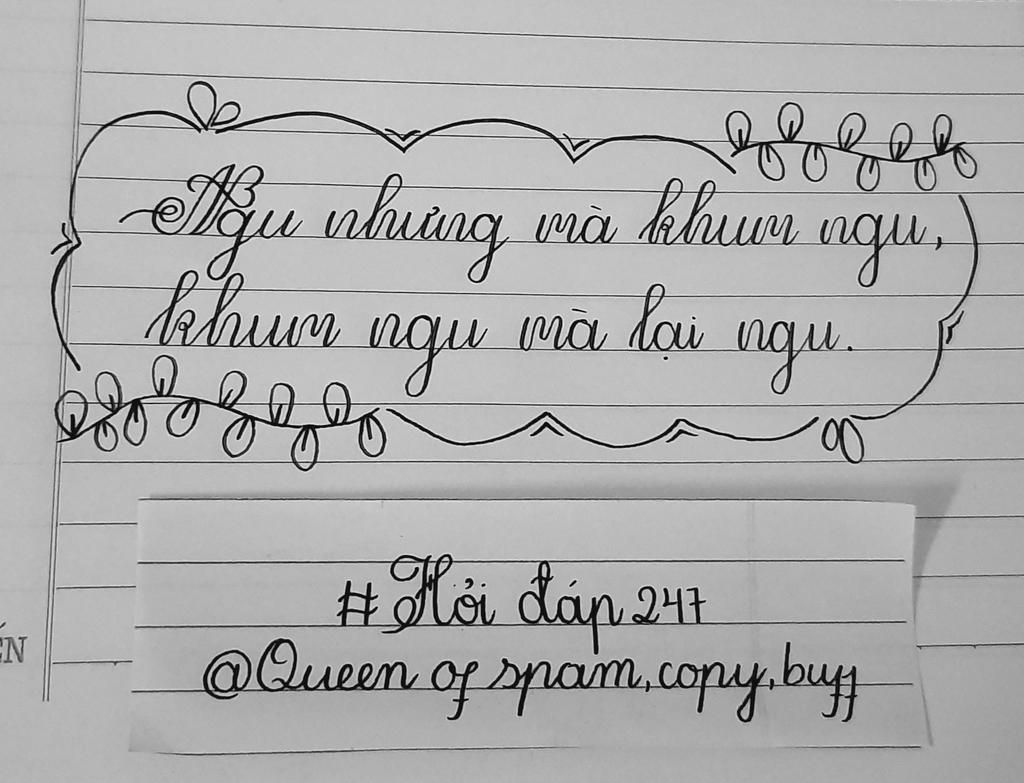 Ngu nhưng mà khum ngu,
khum ngu mà lại ngu.
# Hỏi đáp 247
@Queen of spam, copy, buff